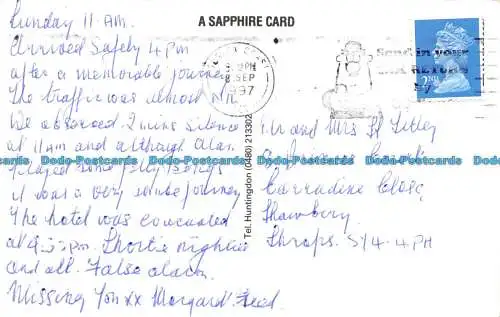 Sunday 11 AM.
A SAPPHIRE CARD
Arrived Safely 4 pm
after a memorable journey
The traffic was almost NIL.
We observed 2 mins silence
at 11am and although Alan
played some jolly songs
it was a very sombre journey
The hotel was evacuated
at pm. Shortie nightie
and all. False alarm.
Missing You xx Margaret
8 SEP
1997
Send in your
TAX RETURN
2ND
Tel. Huntingdon (0480) 213302
Mr and Mrs
Carradine Close,
Shawbury
Shrops. SY4 4PH
Dodo-Postcards Dodo-Postcards Dodo-Postcards Dodo-Postcards Dodo-Postcards